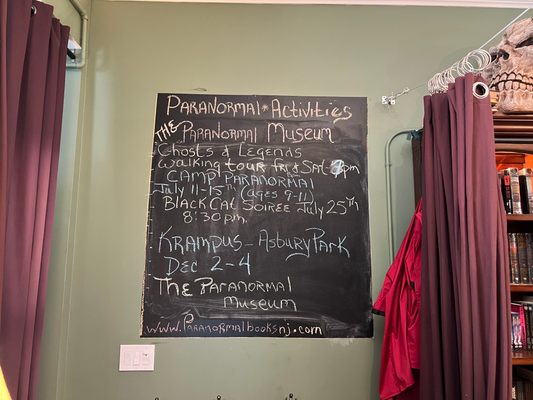 Paranormal * Activities
The Paranormal Museum
Ghosts & Legends
Walking tour fri & Sat 7pm
Camp Paranormal
July 11-15th (ages 9-11)
Black Cat Soiree July 25th
8:30pm.
Krampus - Asbury Park
Dec 2-4
The Paranormal
Museum
www.Paranormalbooksnj.com